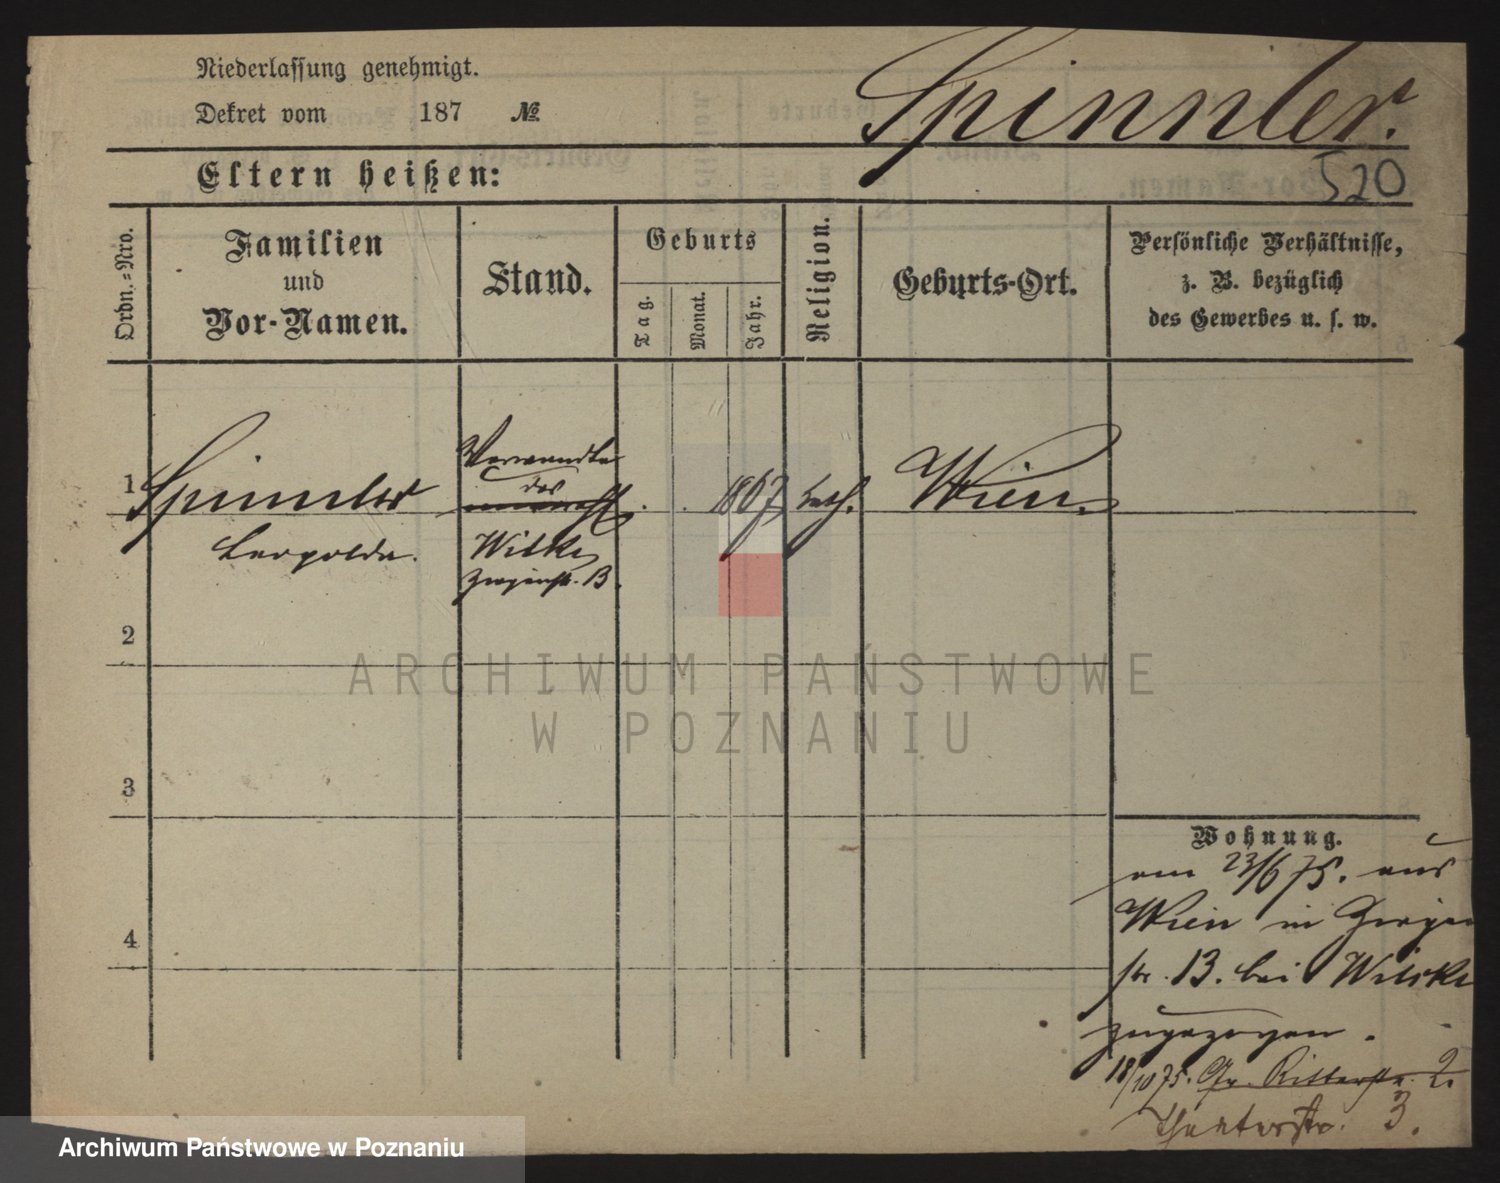 Niederlassung genehmigt.
Dekret vom 187 №
Spinnler.
520
Eltern heißen:
Ordn.=Nro.
Familien
und
Vor-Namen.
Stand.
Geburts
Tag.
Monat.
Jahr.
Religion.
Geburts-Ort.
Persönliche Verhältnisse,
z. B. bezüglich
des Gewerbes u. s. w.
1 Spinnler
Leopoldn.
Verwandte
des
Witke
13.
1867 kath. Wien
2
3
4
Wohnung.
am 23/6 75. aus
Wien in
str. 13. bei
zugezogen.
18/10 75. Gr. Ritterstr. 2.
Theaterstr. 3.
ARCHIWUM PAŃSTWOWE
W POZNANIU
Archiwum Państwowe w Poznaniu